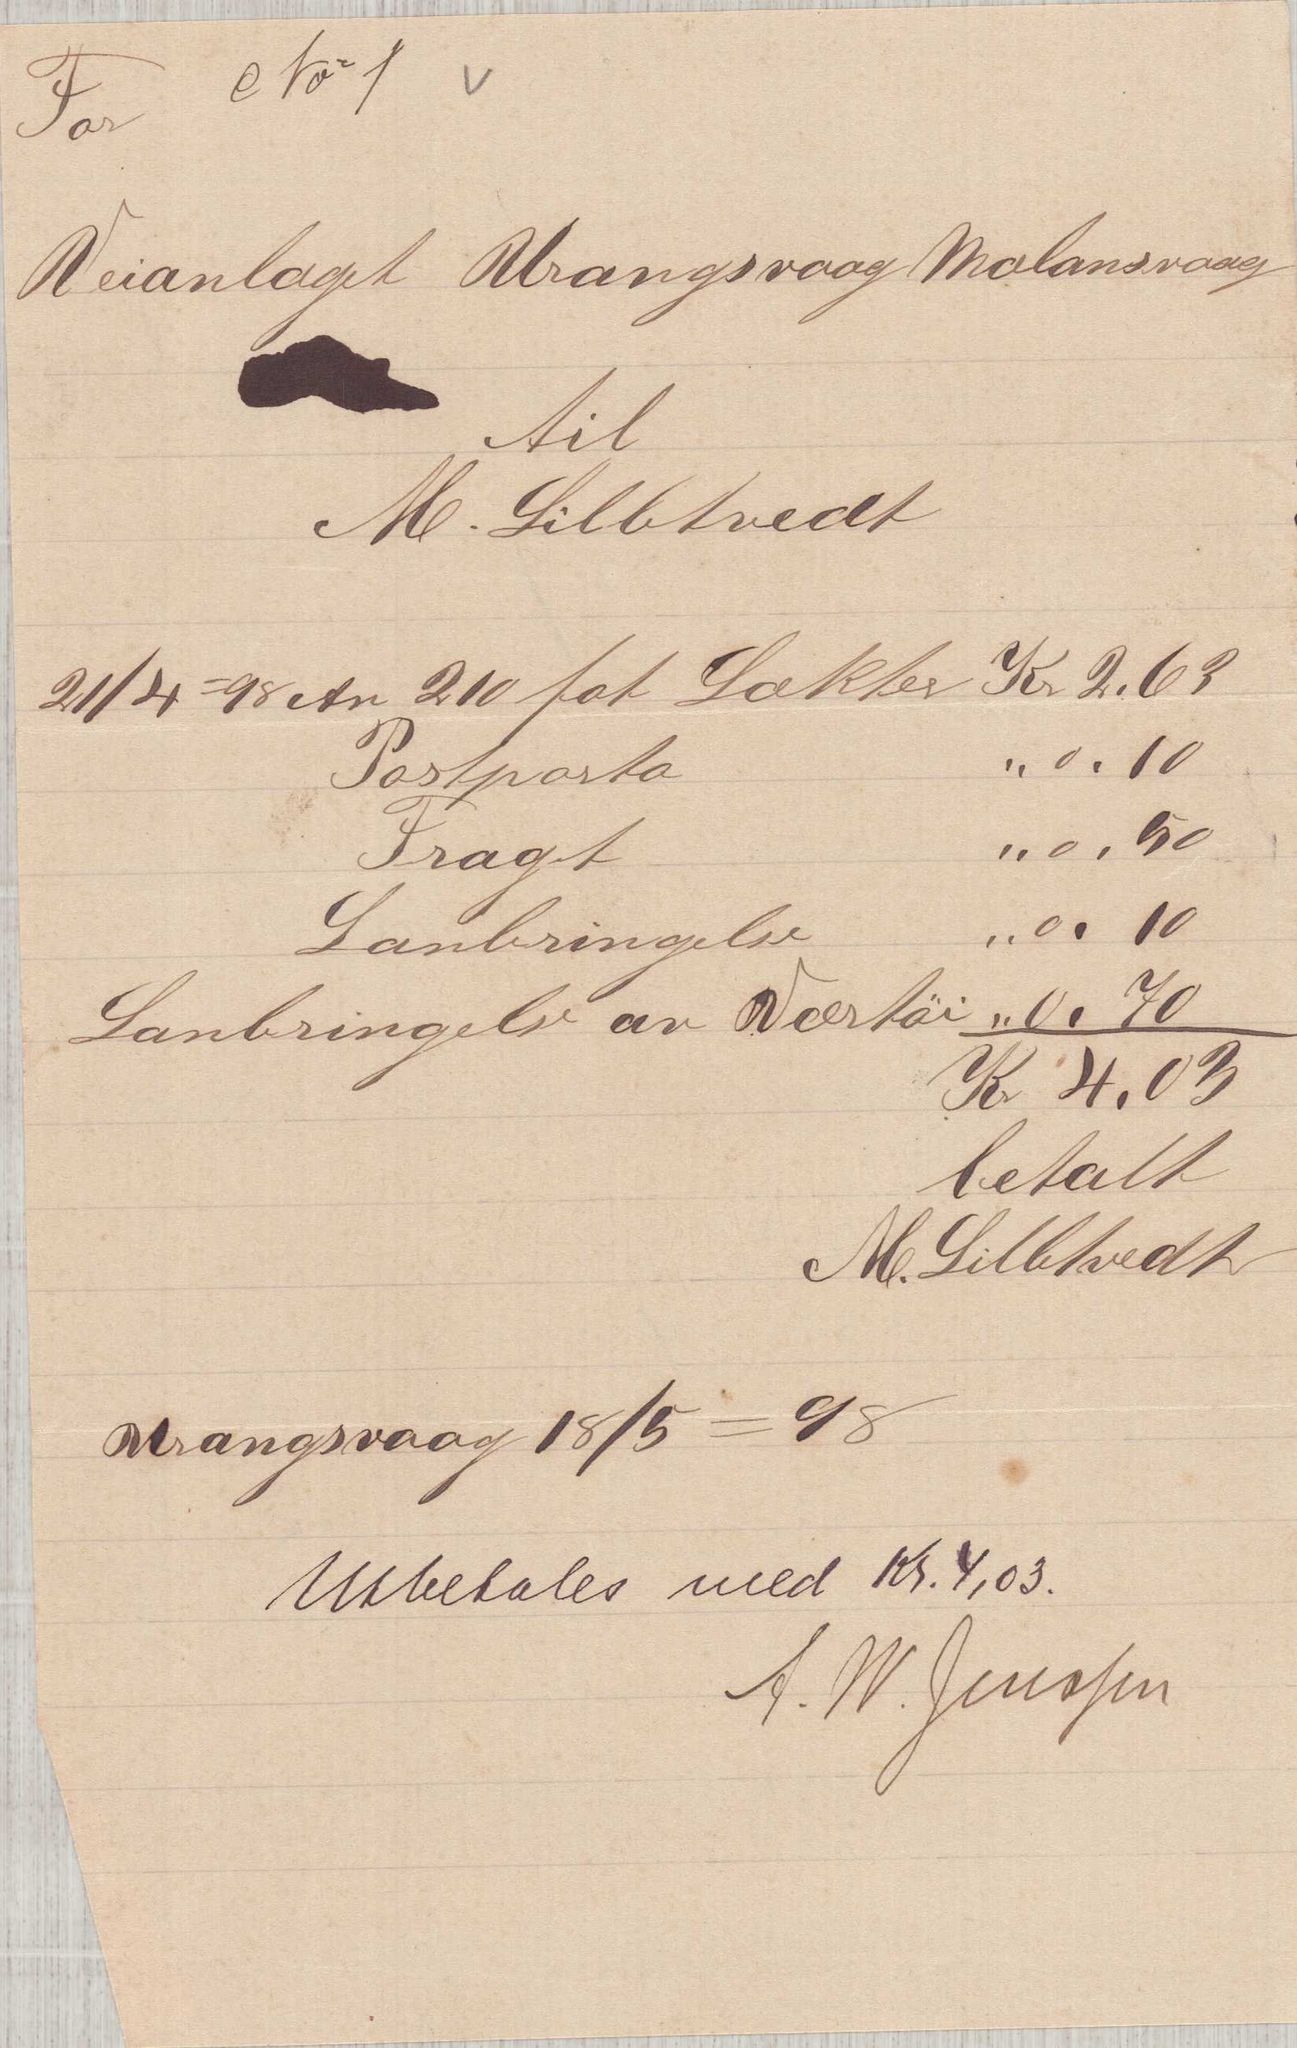 For No 1 v
Veianlaget Urangsvaag Molansvaag
til
M. Lilbtvedt
21/4 = 98 An 210 fot Lækter Kr 2.63
Postporto " 0.10
Fragt " 0.50
Lanbringelse " 0.10
Lanbringelse av Værtöi " 0.70
Kr 4.03
betalt
M. Lilbtvedt
Urangsvaag 18/5 = 98
Utbetales med Kr. 4,03.
A. W. Jenssen